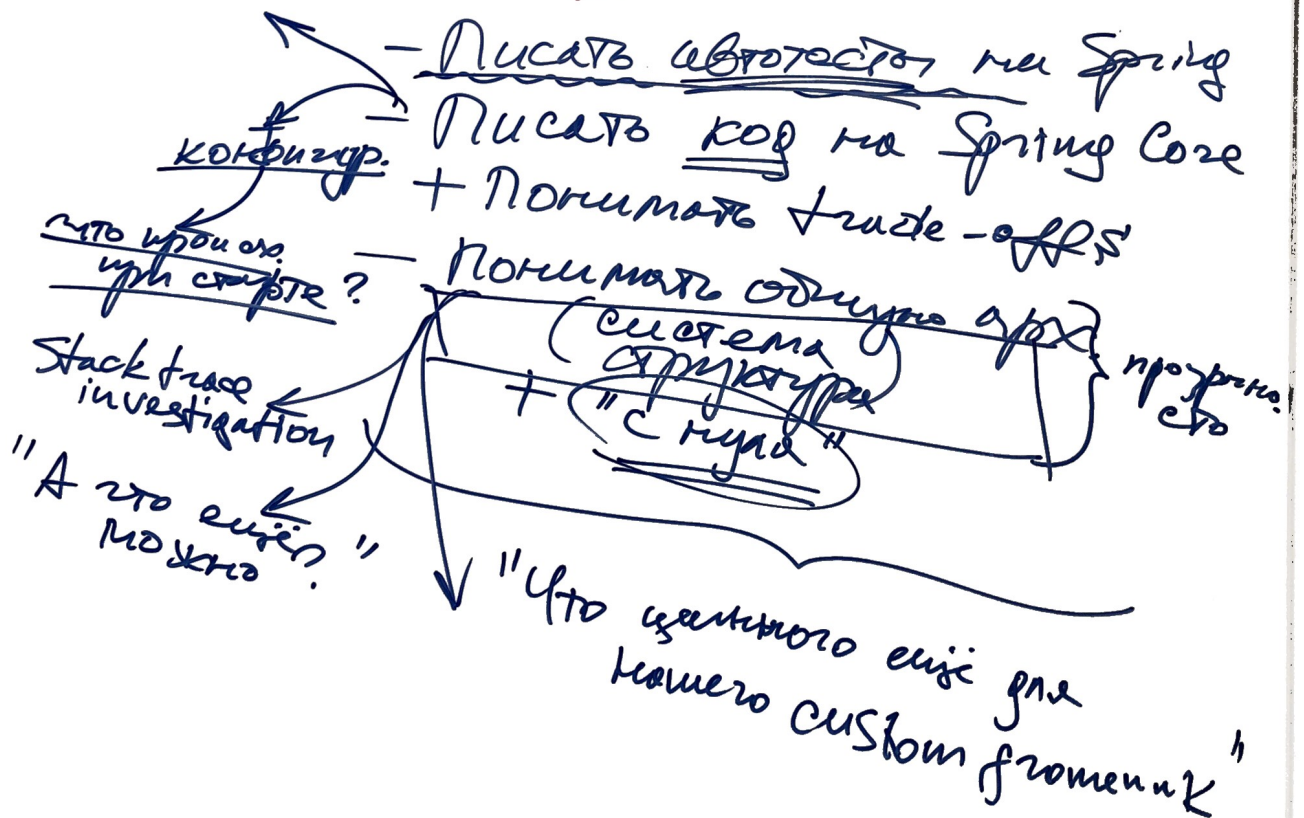 - Писать автотесты на Spring
- Писать код на Spring Core
конфигур.
+ Понимать trade-offs
что происх.
при старте?
- Понимать общую арх
(система
структура)
прозрачно.
сто
+ "с нуля"
Stack trace
investigation
"А что ещё
можно?"
"Что ценного ещё для
нашего custom